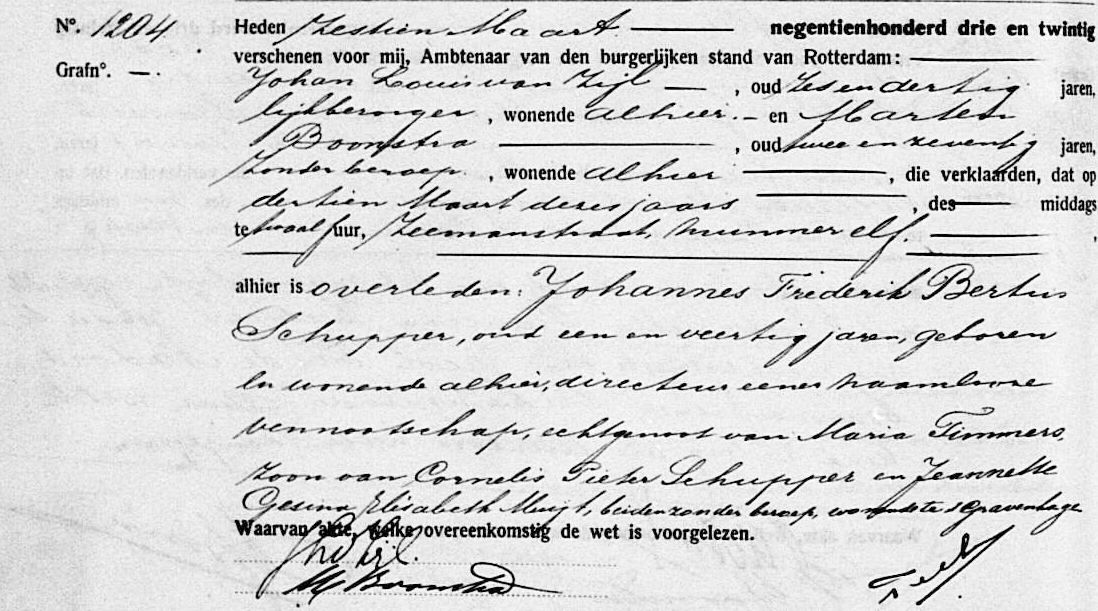 N°. 1204 Heden zestien Maart negentienhonderd drie en twintig
verschenen voor mij, Ambtenaar van den burgerlijken stand van Rotterdam:
Grafn°. —.
Johan Louis van Zijl — , oud zes en dertig jaren,
lijkbezorger , wonende alhier. — en Marten
Boonstra , oud twee en zeventig jaren,
zonder beroep , wonende alhier , die verklaarden, dat op
dertien Maart dezes jaars , des middags
te twaalf uur, Zeemanstraat, nummer elf.
alhier is overleden: Johannes Frederik Bertus
Schupper, oud een en veertig jaren, geboren
en wonende alhier, directeur eener naamlooze
vennootschap, echtgenoot van Maria Timmers,
zoon van Cornelis Pieter Schupper en Jeannette
Gesina Elisabeth, beiden zonder beroep, wonende te 's Gravenhage
Waarvan akte, welke overeenkomstig de wet is voorgelezen.
M Boonstra